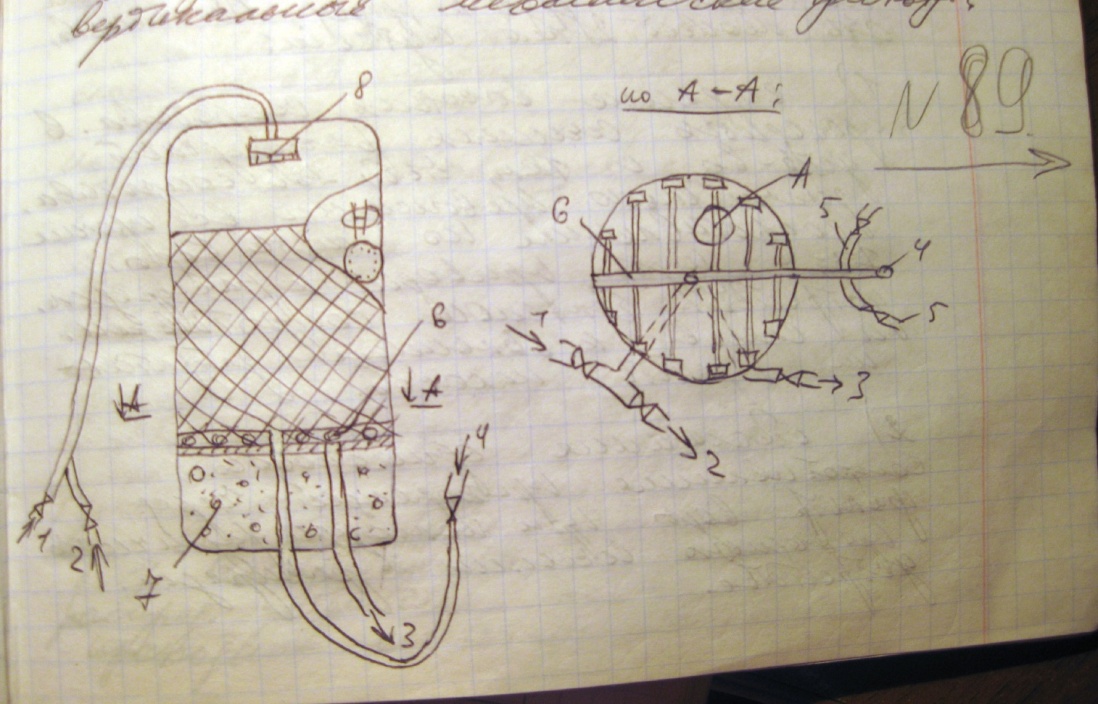 вертикальный механический фильтр.
8
по А-А:
N 89
А
6
5
4
5
1
3
2
6
А
А
4
1
2
7
3